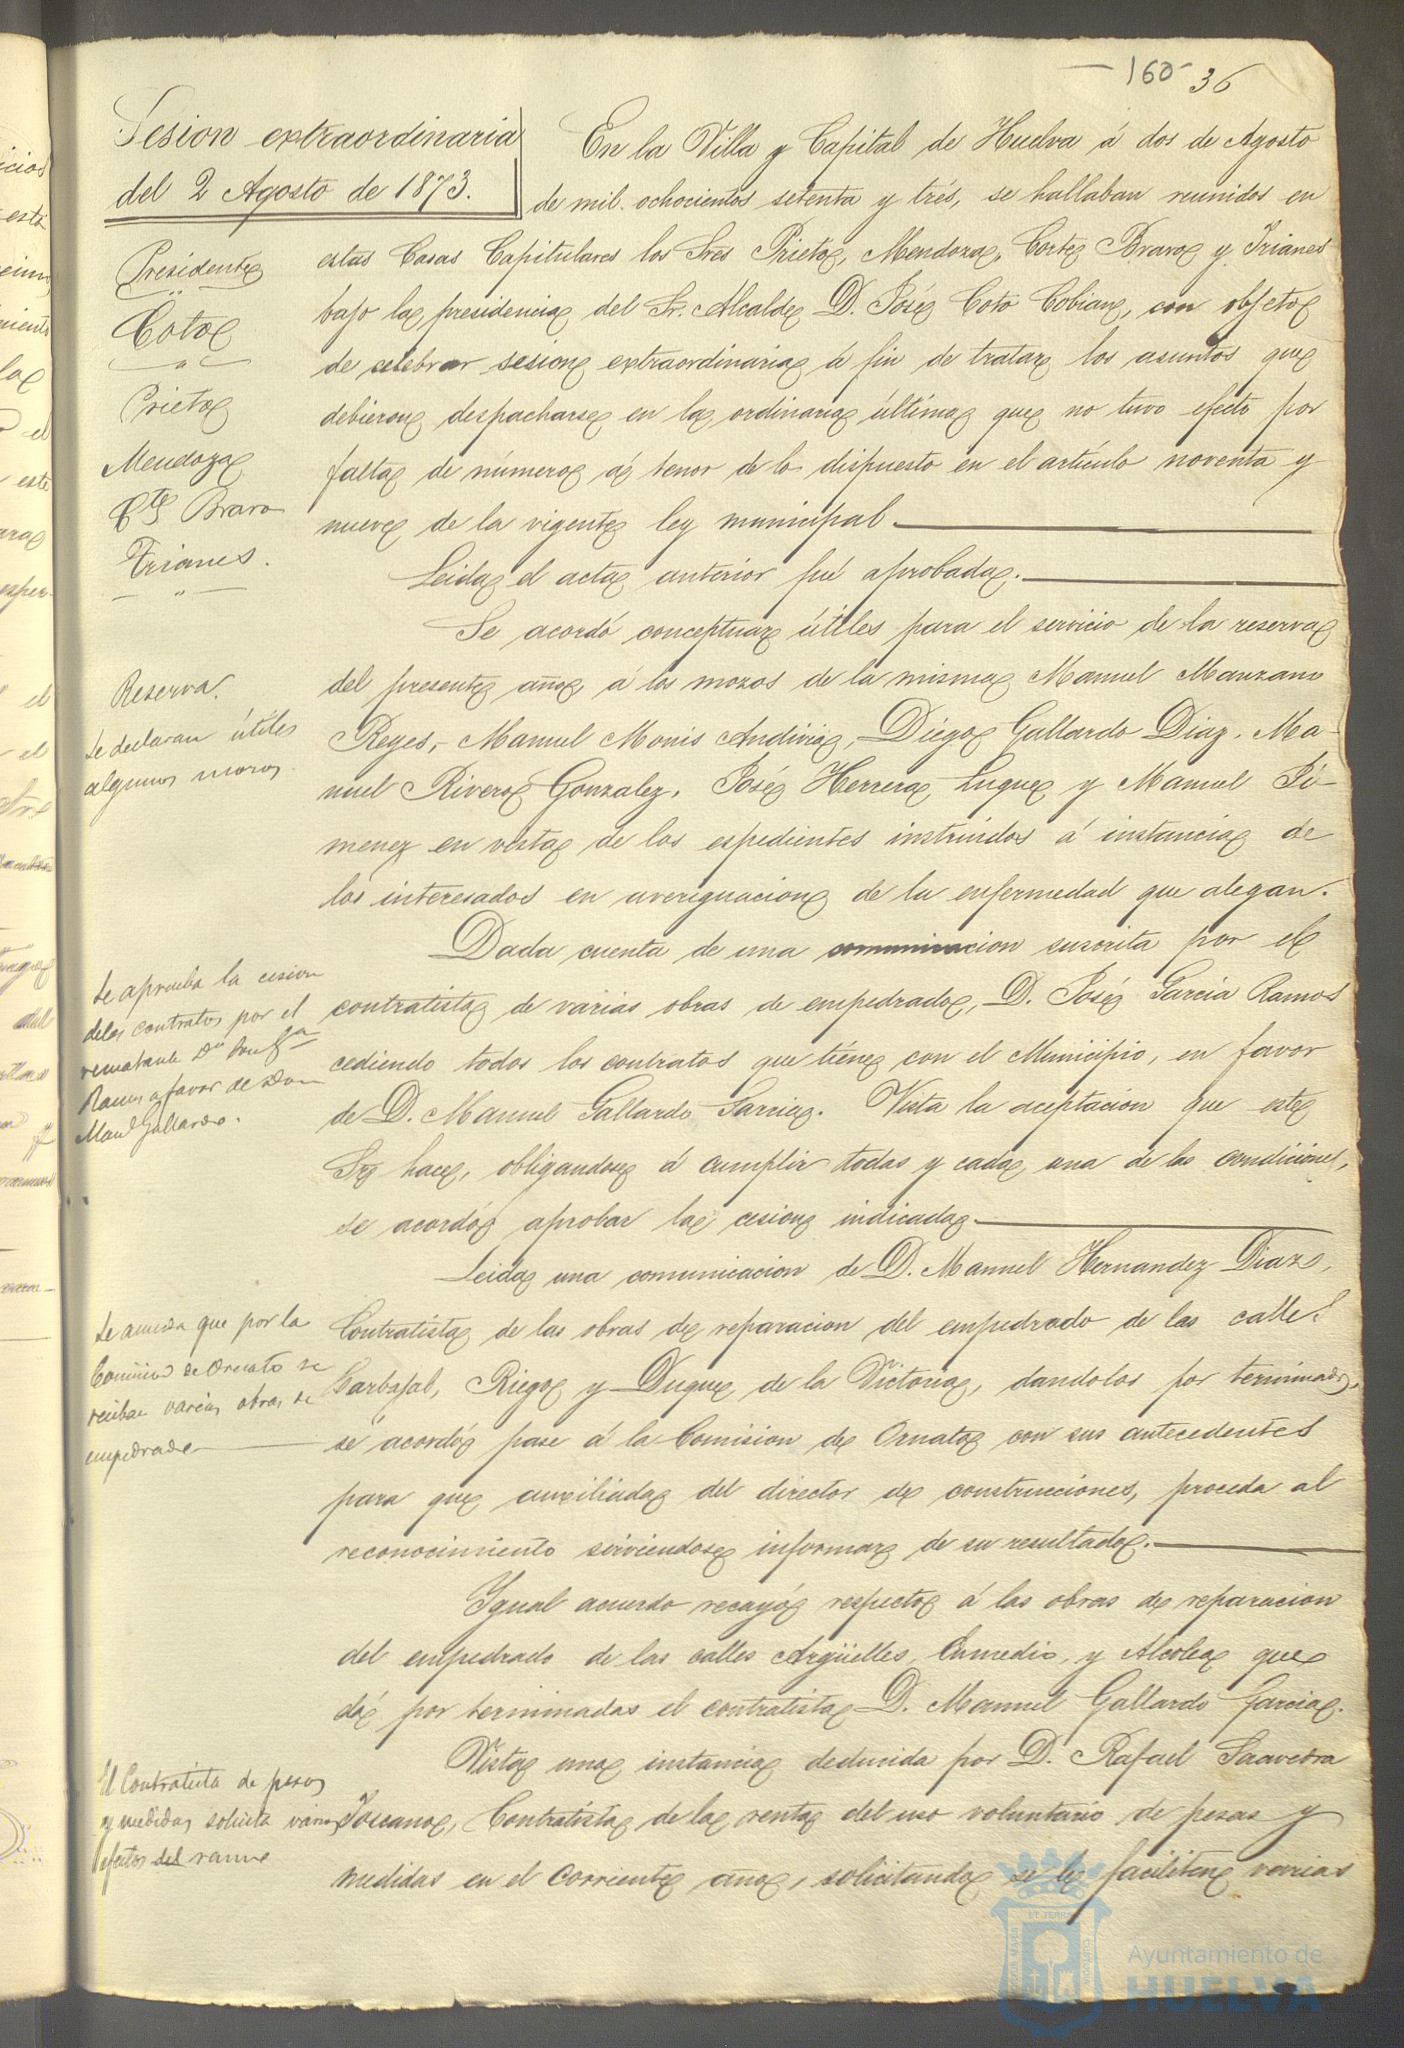 160 36
Sesion extraordinaria
del 2 Agosto de 1873.
Presidente
Coto
Prieto
Mendoza
Cte Bravo
Trianes.
En la Villa y Capital de Huelva á dos de Agosto
de mil ochocientos setenta y trés, se hallaban reunidos en
estas Casas Capitulares los Sres Prieto, Mendoza, Corte Bravo y Trianes
bajo la presidencia del Sr. Alcalde D. José Coto Cobian, con objeto
de celebrar sesion extraordinaria á fin de tratar los asuntos que
debieron despacharse en la ordinaria última que no tuvo efecto por
falta de número á tenor de lo dispuesto en el artículo noventa y
nueve de la vigente ley municipal.
Leida el acta anterior fué aprobada.
Reserva.
Se declaran útiles
algunos mozos
Se acordó conceptuar útiles para el servicio de la reserva
del presente año, á los mozos de la misma Manuel Manzano
Reyes, Manuel Monis Andivia, Diego Gallardo Diaz, Ma-
nuel Rivero Gonzalez, José Herrera Luque y Manuel Ji-
menez en vista de los espedientes instruidos á instancia de
los interesados en averiguacion de la enfermedad que alegan.
Se aprueba la cesion
de los contratos por el
rematante Dn José Ga
Ramos a favor de Don
Manl Gallardo.
Dada cuenta de una comunicacion suscrita por el
contratista de varias obras de empedrado, D. José Garcia Ramos
cediendo todos los contratos que tiene con el Municipio, en favor
de D. Manuel Gallardo Garcia. Vista la aceptacion que este
Sr hace, obligandose á cumplir todas y cada una de las condiciones,
se acordó aprobar la cesion indicada.
Se acuerda que por la
Comision de Ornato se
reciban varias obras de
empedrado
Leida una comunicacion de D. Manuel Hernandez Diaz,
Contratista de las obras de reparacion del empedrado de las calles
Carbajal, Riego y Duque de la Victoria, dandolas por terminadas,
se acordó pase á la Comision de Ornato con sus antecedentes
para que auxiliada del director de construcciones, proceda al
reconocimiento sirviendose informar de su resultado.
Igual acuerdo recayó respecto á las obras de reparacion
del empedrado de las calles Argüelles, Enmedio, y Alcolea que
dá por terminadas el contratista D. Manuel Gallardo Garcia.
El Contratista de pesas
y medidas solicita varios
efectos del ramo
Vista una instancia deducida por D. Rafael Saavedra
Toscano, Contratista de la renta del uso voluntario de pesas y
medidas en el corriente año, solicitando se le faciliten varias
Ayuntamiento de
HUELVA